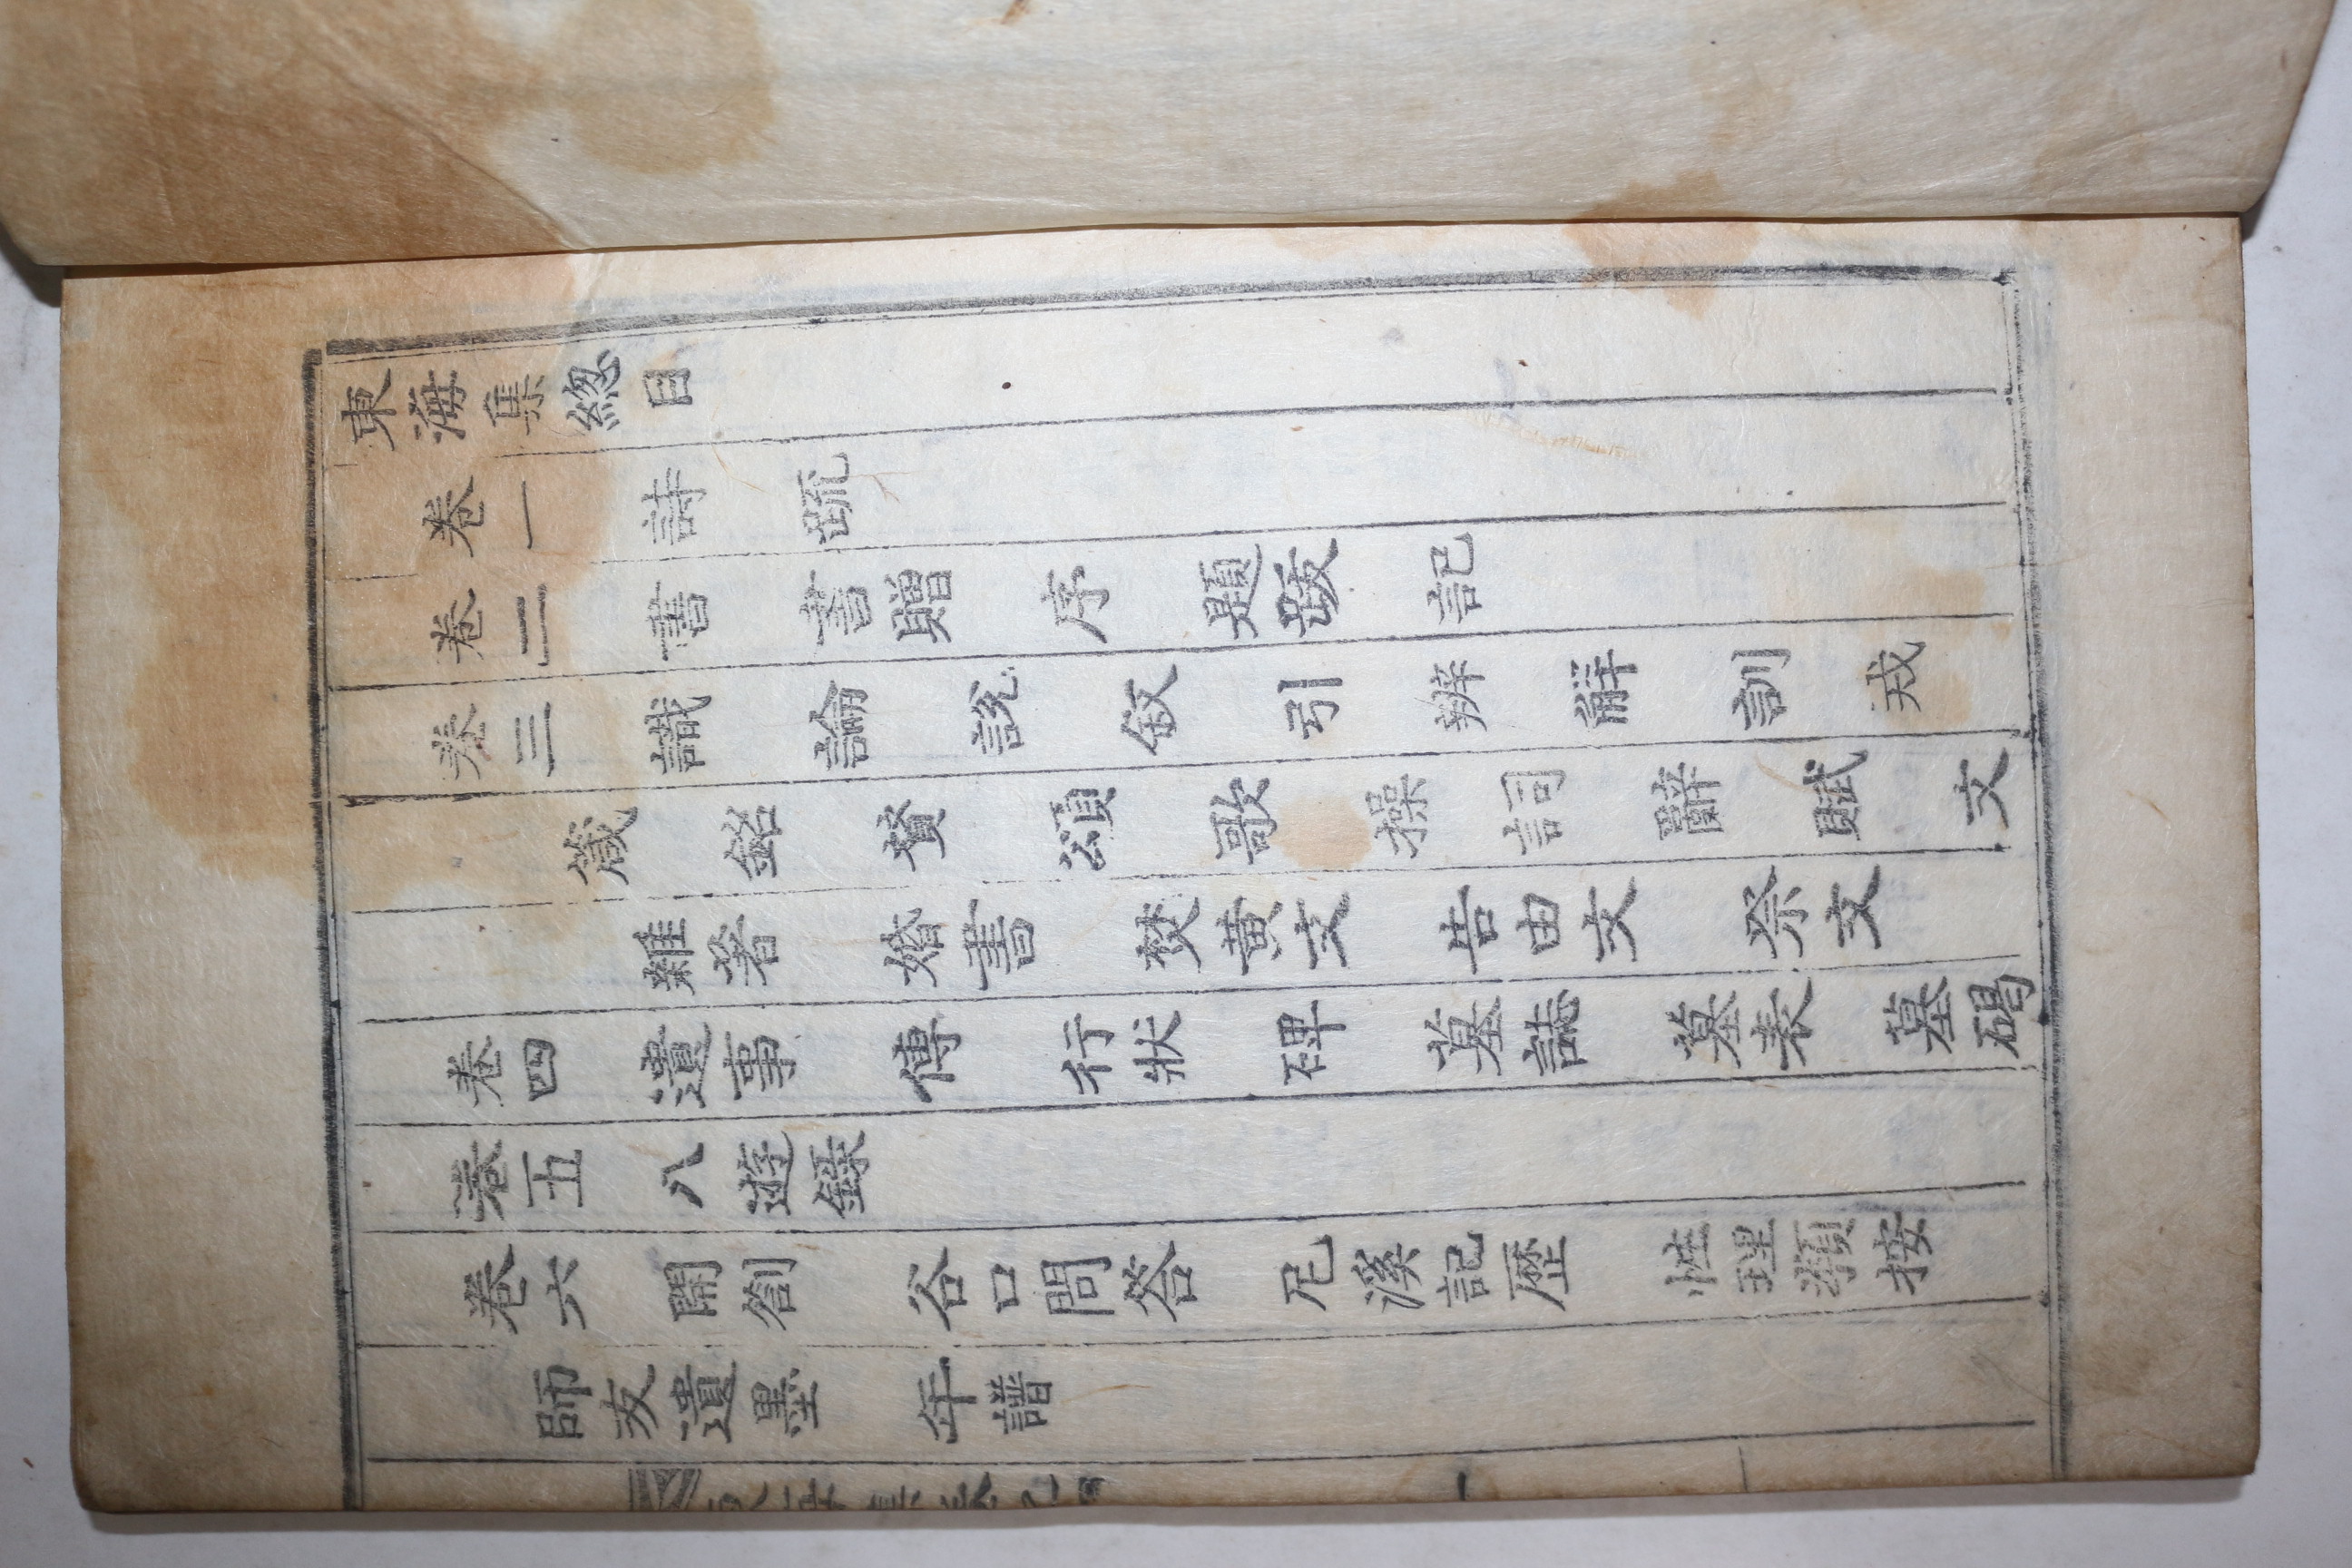 東海集總目
卷一 詩 疏
卷二 書 書贈 序 題跋 記
卷三 識 論 說 敘 引 辨 解 訓 戒
箴 銘 贊 頌 歌 操 詞 辭 賦 文
雜著 婚書 焚黃文 告由文 祭文
卷四 遺事 傳 行狀 碑 墓誌 墓表 墓碣
卷五 八遊錄
卷六 開劄 谷口問答 尼溪記歷 性理類按
師友遺墨 年譜